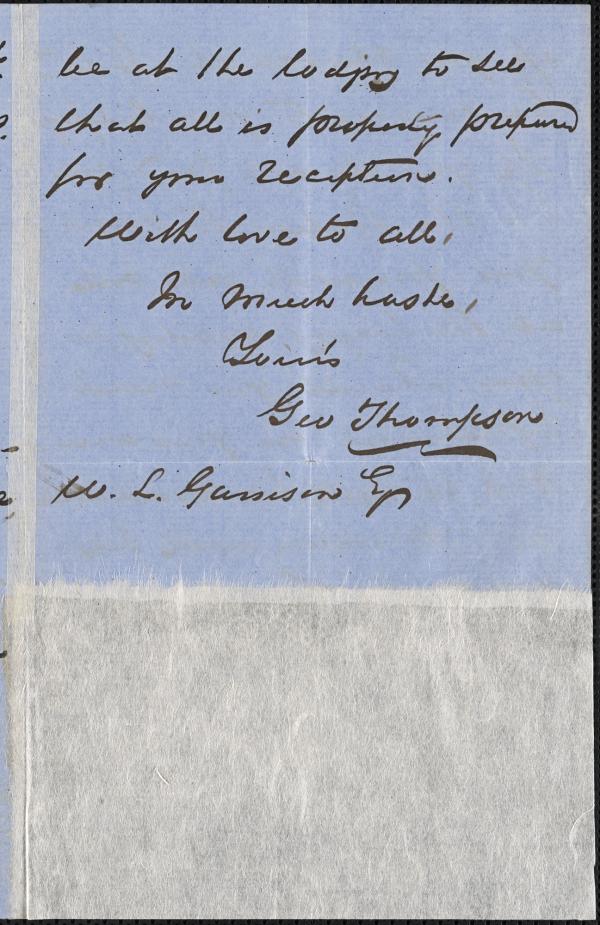 be at the lodging to see
that all is properly prepared
for your reception.
With love to all,
In much haste,
Yours
Geo Thompson
W. L. Garrison Esq